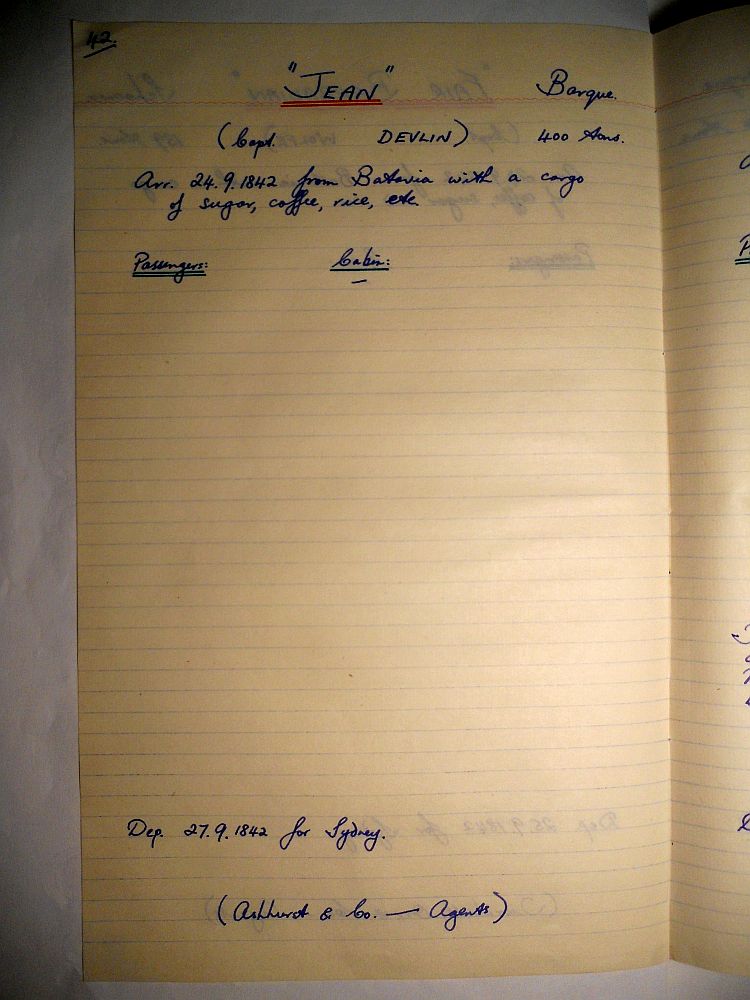 42.
"JEAN" Barque.
(Capt. DEVLIN) 400 tons.
Arr. 24.9.1842 from Batavia with a cargo
of sugar, coffee, rice, etc.
Passengers: Cabin:
—
Dep. 27.9.1842 for Sydney.
(Ashhurst & Co. — Agents)